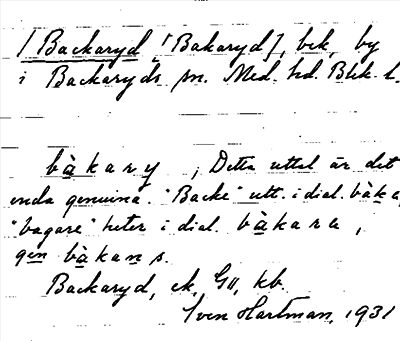 / Backaryd [Bakaryd], bek, by
i Backaryds sn. Med. hd. Blek. l.
bàkary, Detta uttal är det
enda genuina. "Backe" utt. i dial. bàka,
"bagare" heter i dial. bàkara,
gen bàkans.
Backaryd, ek, GII, kb.
Sven Hartman, 1931